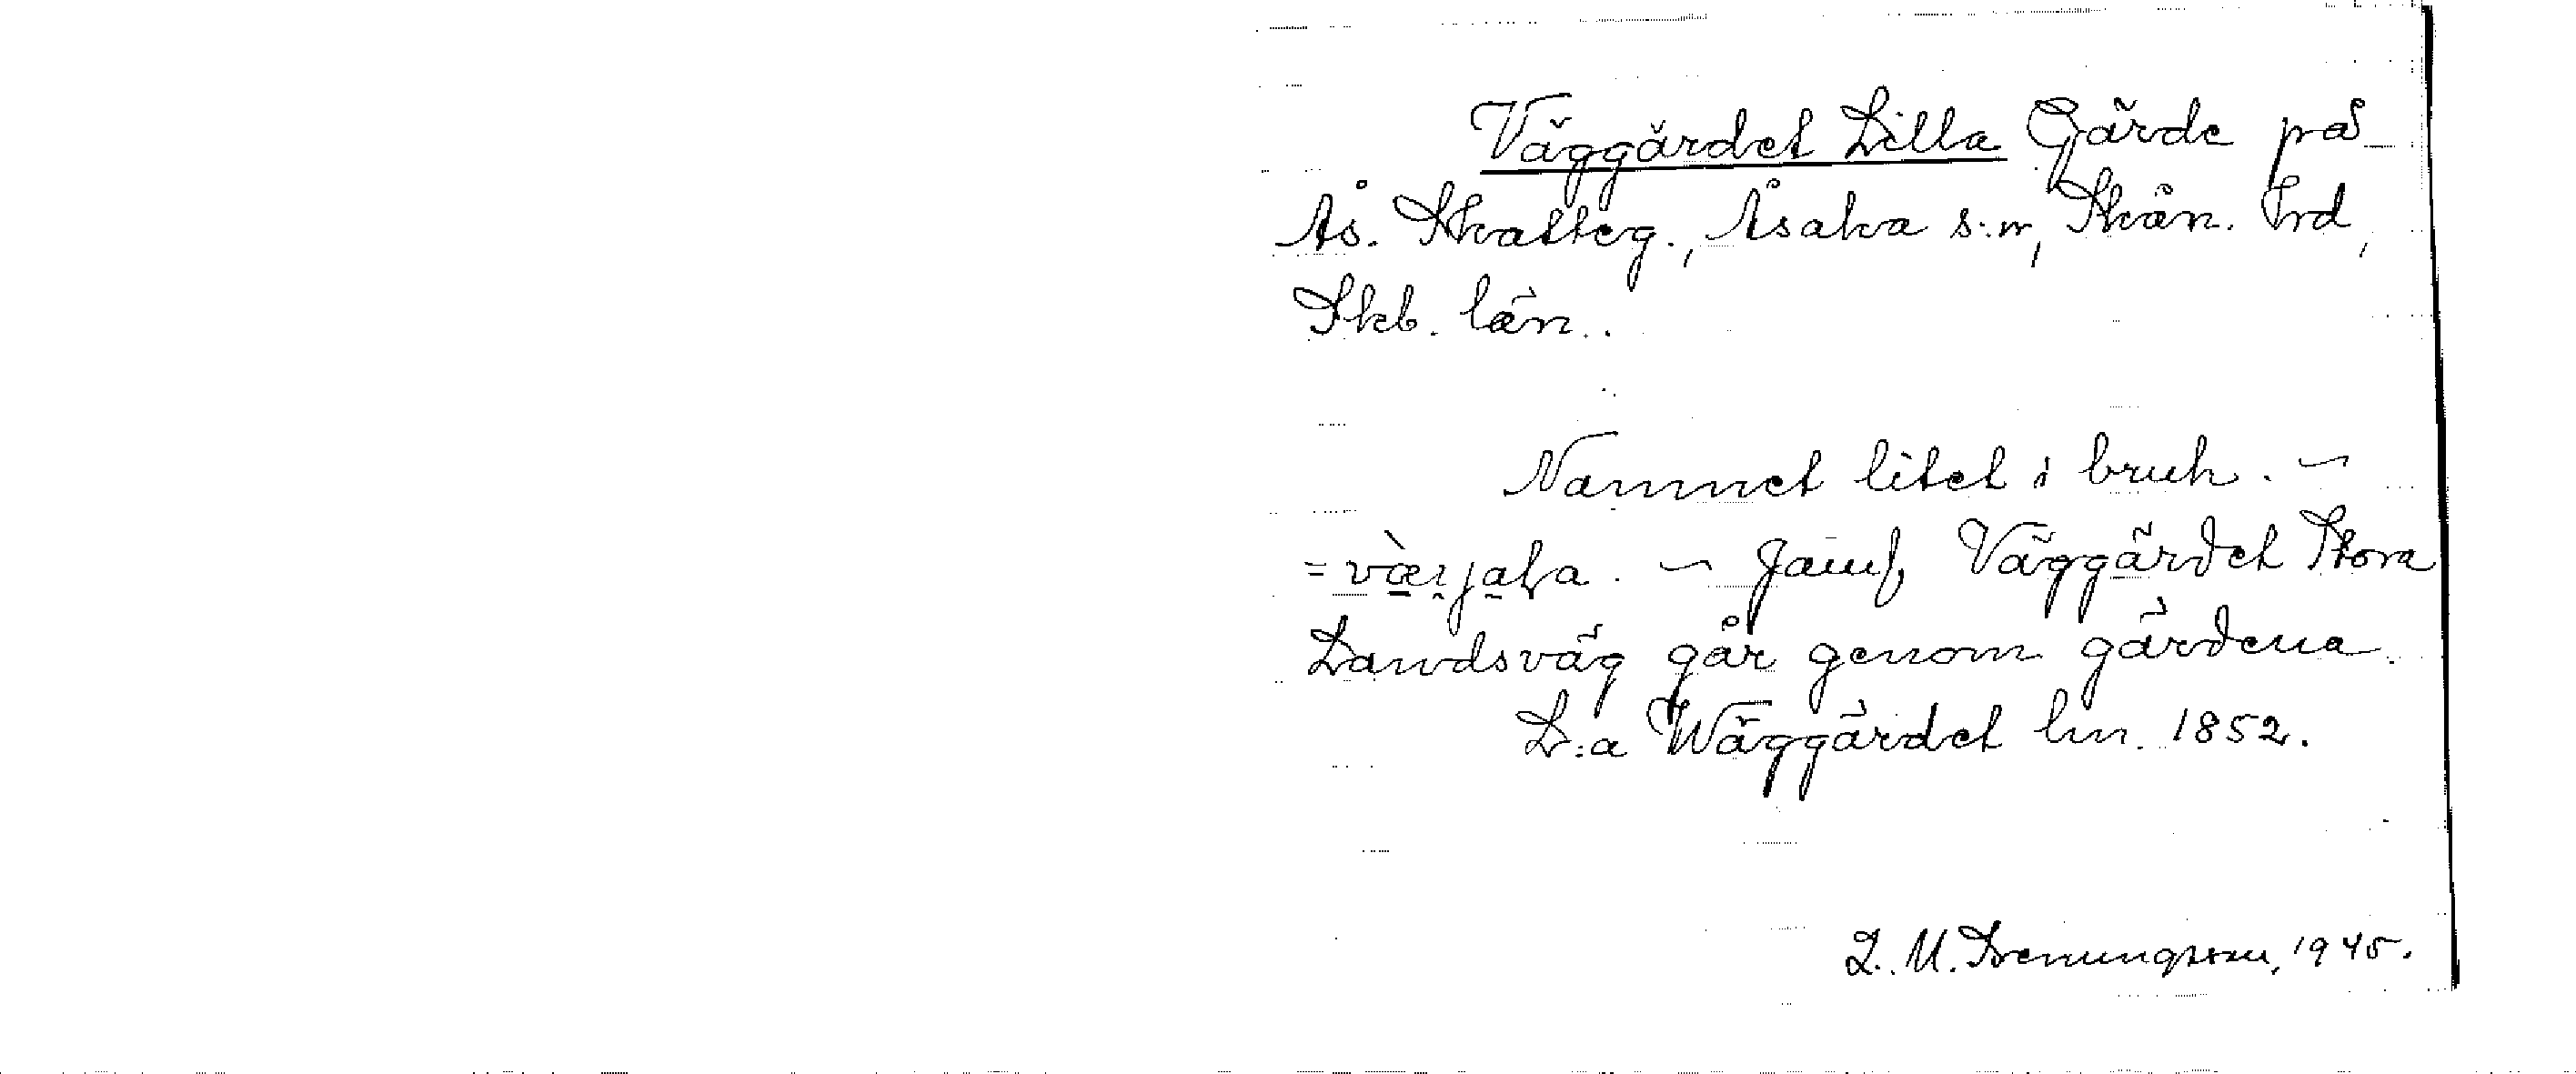 Väggärdet Lilla Gärde på
Ås. Skatteg., Åsaka s:n, Skån. hrd,
Skb. län.
Namnet litet i bruk. –
= 
– Jämf. Väggärdet Stora
Landsväg går genom gärdena.
L:a Wäggärdet lm. 1852.
1945.